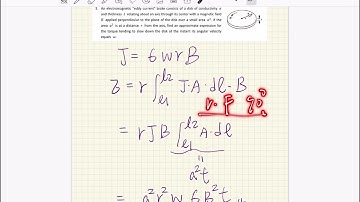 An electromagnetic "eddy current" brake consists of a disk of conductivity σ
and thickness t rotating about an axis through its center with a magnetic field
B applied perpendicular to the plane of the disk over a small area a². If the
area a² is at a distance r from the axis, find an approximate expression for
the torque tending to slow down the disk at the instant its angular velocity
equals ω.
J = σωrB
τ = r ∫ℓ1^ℓ2 J·A·dℓ·B
r·F 90°
= rJB ∫ℓ1^ℓ2 A·dℓ
"
a²t
= a²r²ωσB²t